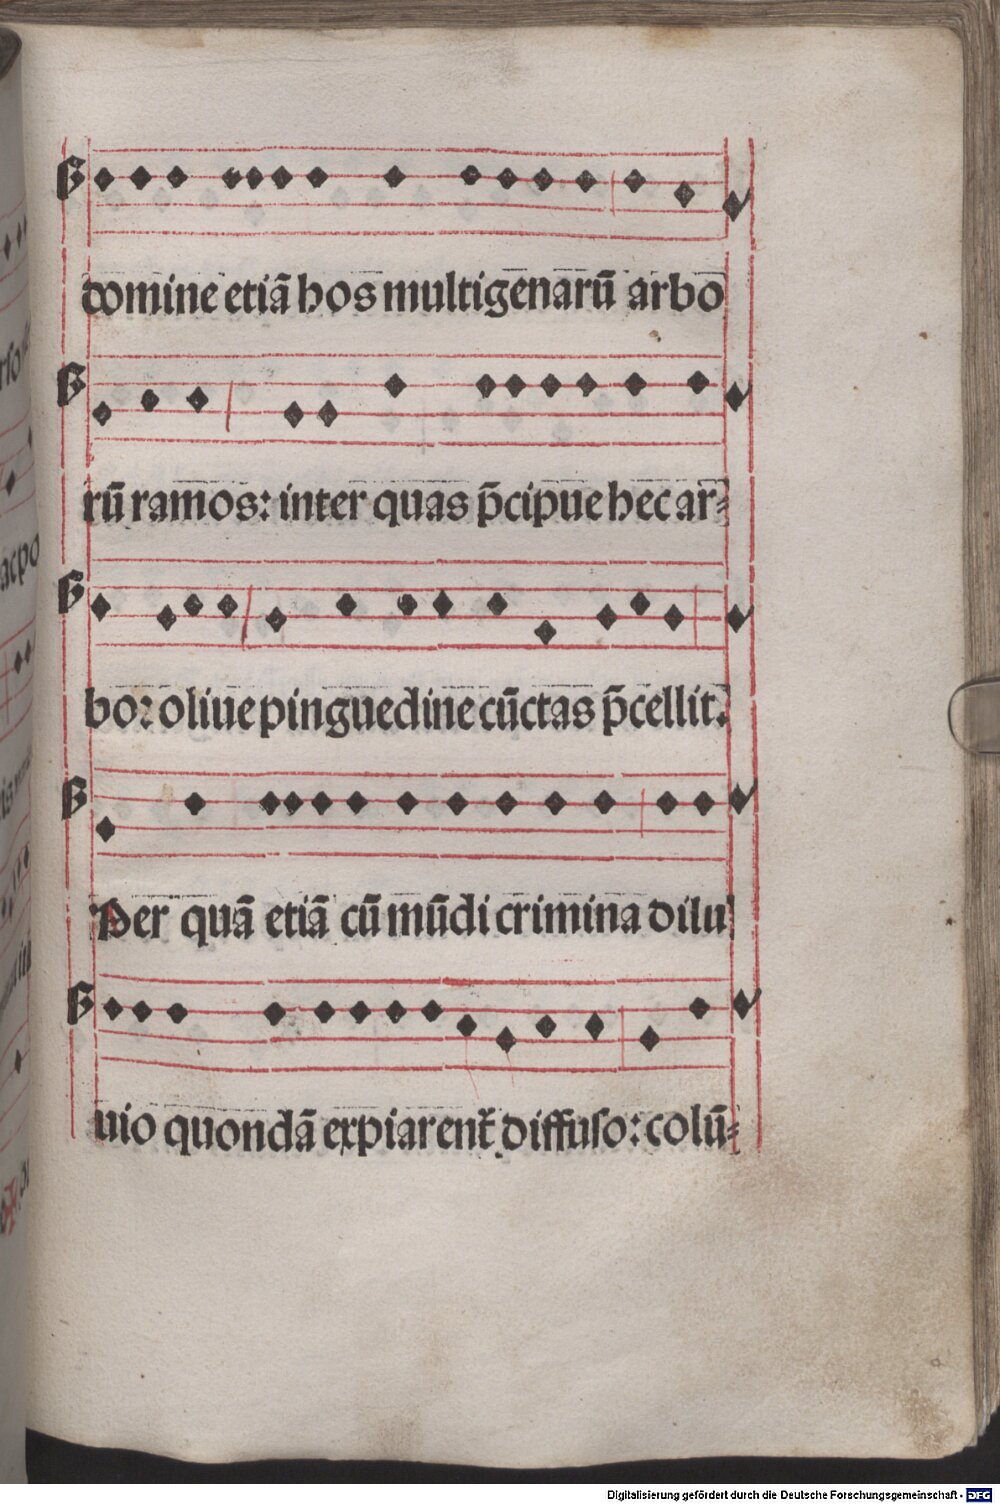 domine etiā hos multigenarū arbo
rū ramos: inter quas p̄cipue hec ar⸗
bor oliue pinguedine cūctas p̄cellit.
Per quā etiā cū mūdi crimina dilu
uio quondā expiarent᷑ diffuſo: colū⸗
Digitalisierung gefördert durch die Deutsche Forschungsgemeinschaft - DFG